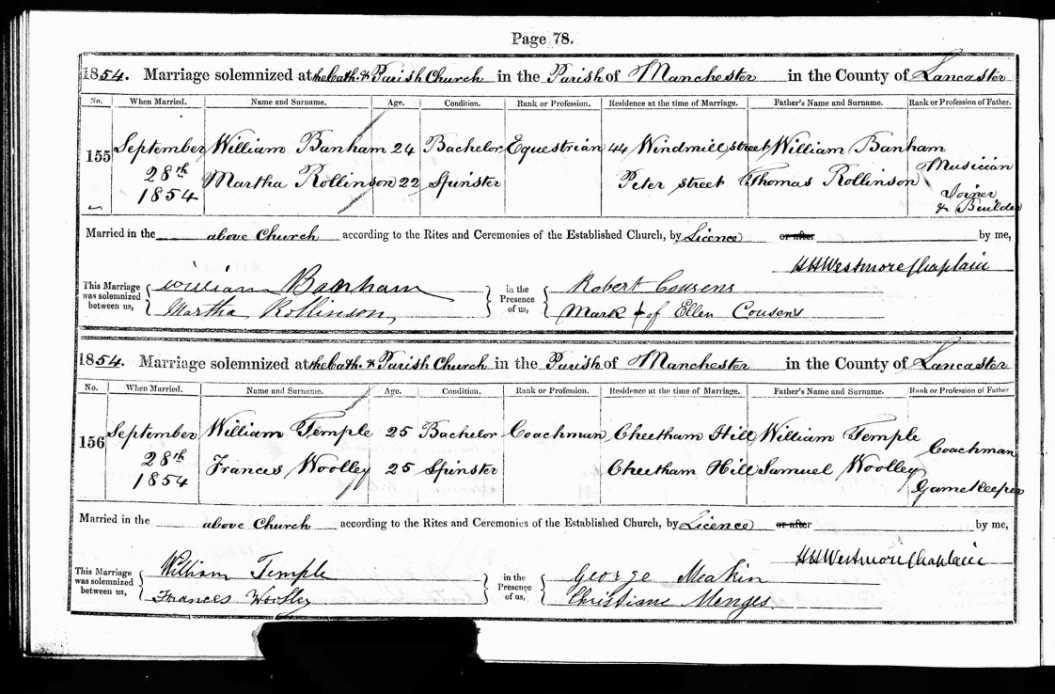 Page 78.
1854. Marriage solemnized at the Cath. & Parish Church in the Parish of Manchester in the County of Lancaster
No. When Married. Name and Surname. Age. Condition. Rank or Profession. Residence at the time of Marriage. Father's Name and Surname. Rank or Profession of Father.
155 September 28th 1854 William Banham 24 Bachelor Equestrian 44 Windmill street William Banham Musician
Martha Rollinson 22 Spinster Peter street Thomas Rollinson Joiner & Builder
Married in the above Church according to the Rites and Ceremonies of the Established Church, by Licence or after by me,
HHWestmore Chaplain
This Marriage was solemnized between us, William Banham in the Presence of us, Robert Cousens
Martha Rollinson, Mark + of Ellen Cousens
1854. Marriage solemnized at the Cath. & Parish Church in the Parish of Manchester in the County of Lancaster
No. When Married. Name and Surname. Age. Condition. Rank or Profession. Residence at the time of Marriage. Father's Name and Surname. Rank or Profession of Father
156 September 28th 1854 William Temple 25 Bachelor Coachman Cheetham Hill William Temple Coachman
Frances Woolley 25 Spinster Cheetham Hill Samuel Woolley Gamekeeper
Married in the above Church according to the Rites and Ceremonies of the Established Church, by Licence or after by me,
HHWestmore Chaplain
This Marriage was solemnized between us, William Temple in the Presence of us, George Meakin
Frances Woolley Christiane Menges.